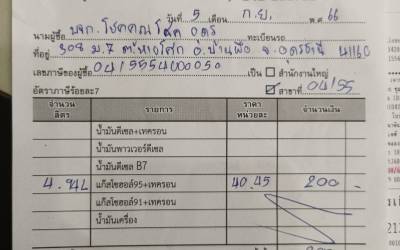 วันที่ 5 เดือน ก.ย. พ.ศ 66
นามผู้ซื้อ บจก. โชคคูณโชค อุดร ทะเบียนรถ
ที่อยู่ 308 ม.7 ต. อ.บ้านผือ จ.อุดรธานี 41160
เลขภาษีของผู้ซื้อ 0415554000050 เป็น สำนักงานใหญ่
อัตราภาษีร้อยละ7 สาขาที่ 04155
จำนวนลิตร รายการ ราคาหน่วยละ จำนวนเงิน
น้ำมันดีเซล+เทครอน
น้ำมันพาวเวอร์ดีเซล
น้ำมันดีเซล B7
4.94L แก๊สโซฮอล์95+เทครอน 40.45 200 -
แก๊สโซฮอล์91+เทครอน
น้ำมันเครื่อง